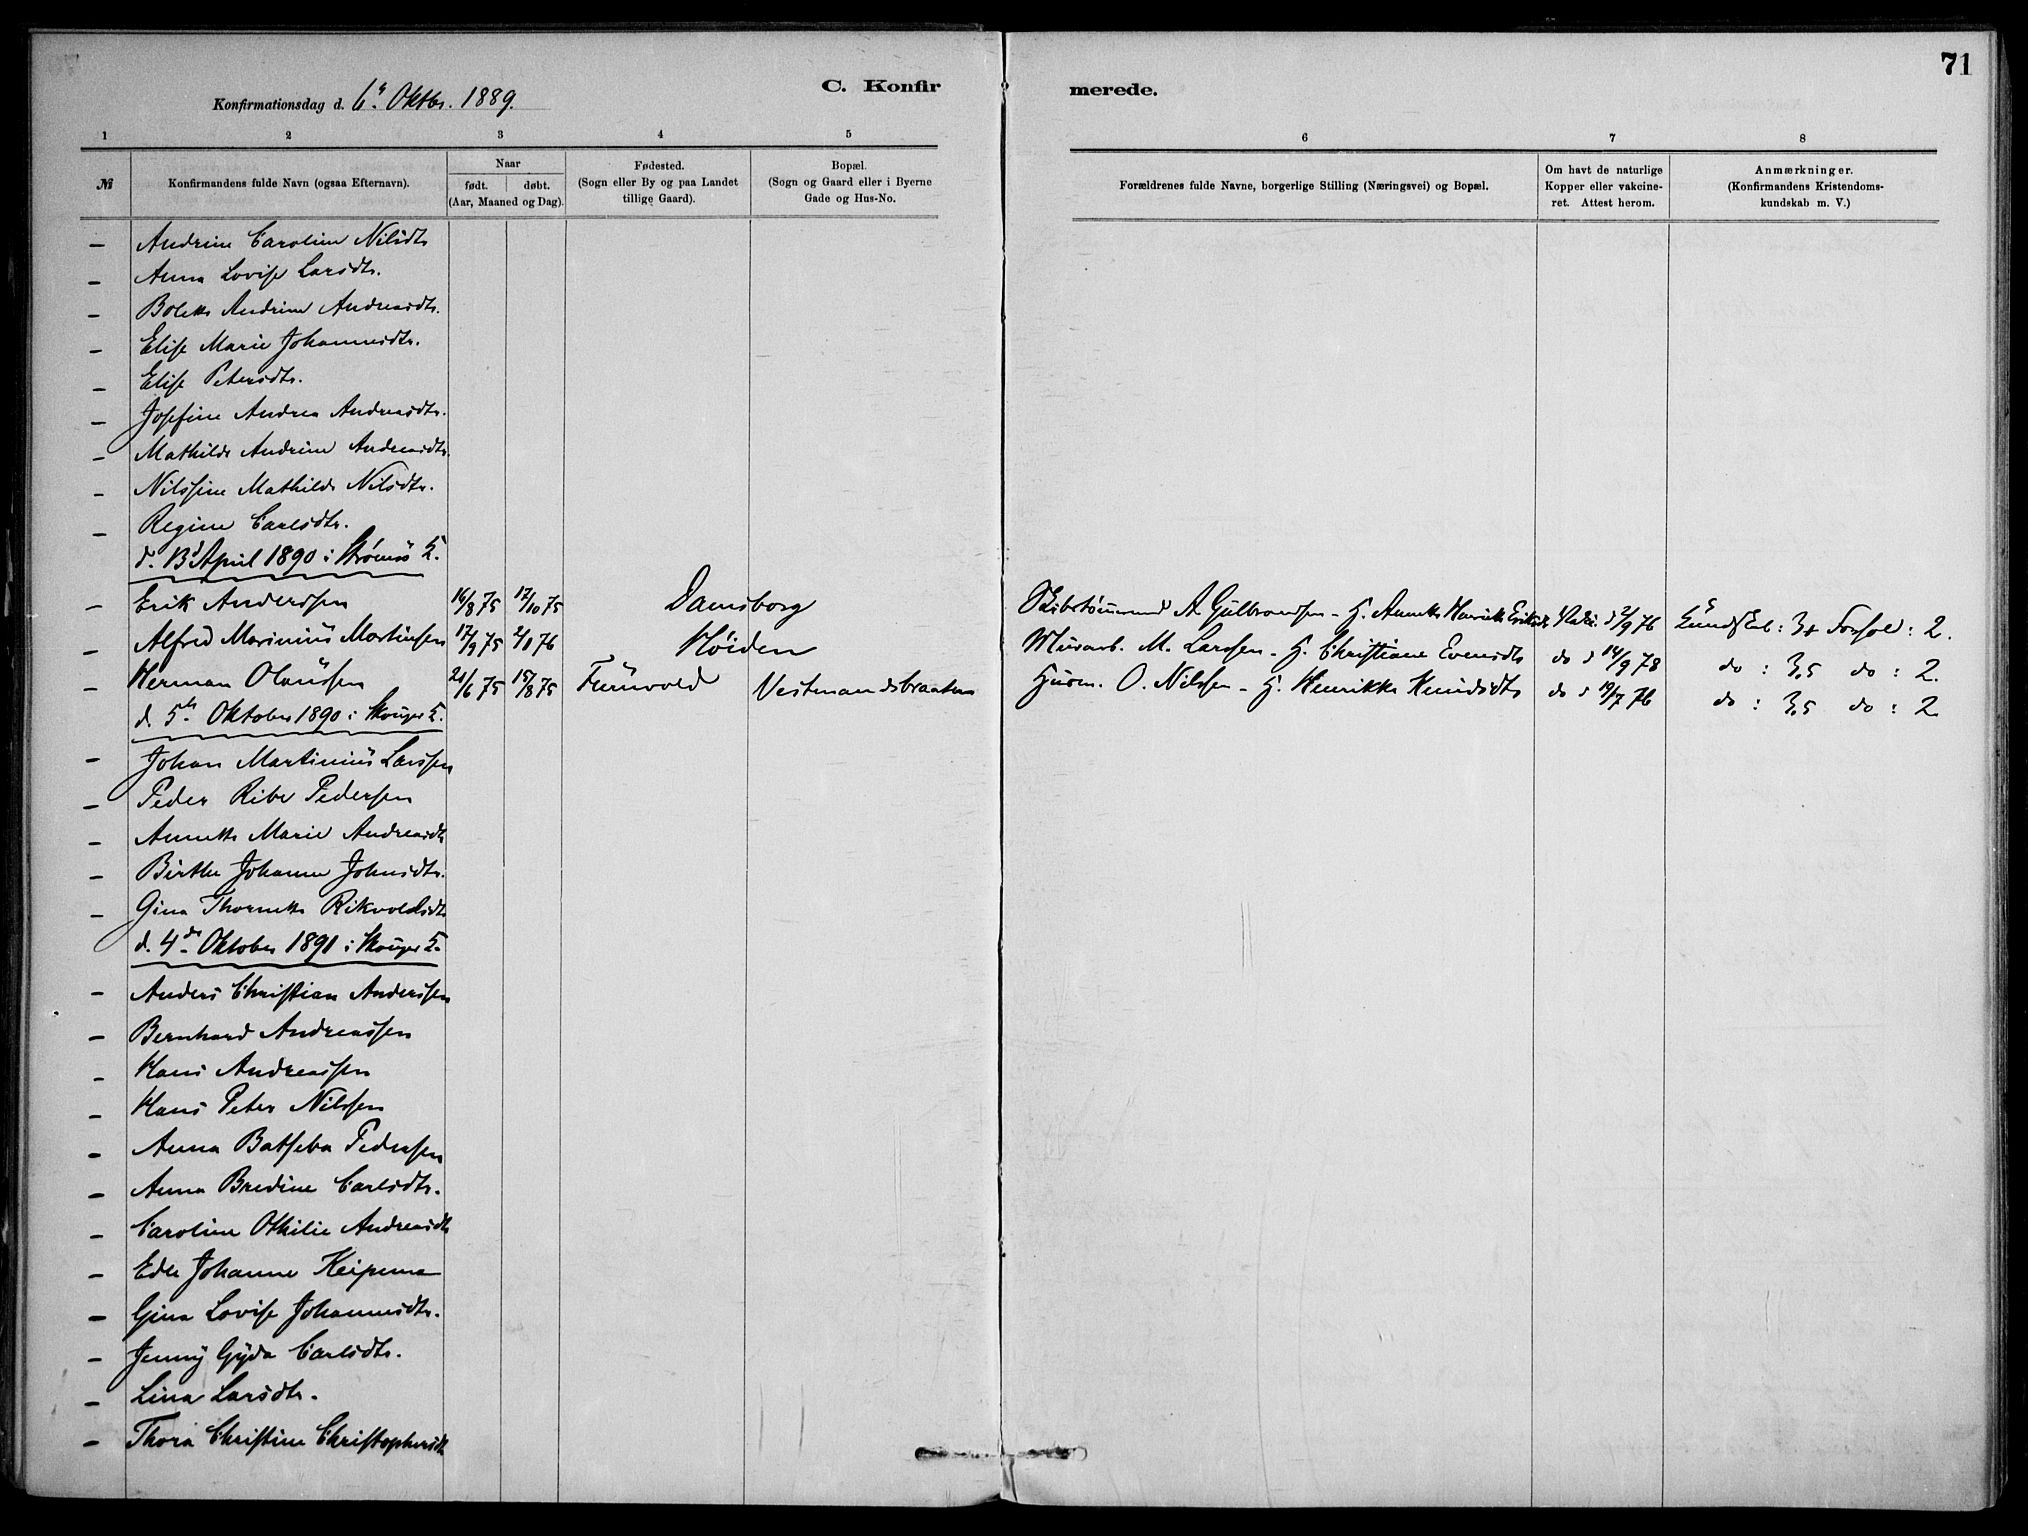 71
C. Konfirmerede.
Konfirmationsdag d. 6te Oktbr. 1889.
1 2 3 4 5 6 7 8
№ Konfirmandens fulde Navn (ogsaa Efternavn). Naar født. døbt. (Aar, Maaned og Dag). Fødested. (Sogn eller By og paa Landet tillige Gaard). Bopæl. (Sogn og Gaard eller i Byerne Gade og Hus-No. Forældrenes fulde Navne, borgerlige Stilling (Næringsvei) og Bopæl. Om havt de naturlige Kopper eller vakcineret. Attest herom. Anmærkninger. (Konfirmandens Kristendomskundskab m. V.)
– Andrine Caroline Nilsdtr
– Anna Lovise Larsdtr.
– Bolette Andrine Andreasdtr.
– Elise Marie Johannesdtr.
– Elise Petersdtr.
– Josefine Andrea Andreasdtr.
– Mathilde Andrine Andreasdtr.
– Nilssine Mathilde Nilsdtr.
– Regine Carlsdtr.
d. 13d April 1890 i Strømsö K.
– Erik Anderssen 16/8 75 17/10 75 Damsborg A. Gulbrandsen - H. Annette Henrikke Eriksdtr Vakc. d 2/9 76 Kundskab : 3+ Forhold : 2.
– Alfred Marinius Martinsen 17/9 75 2/1 76 Höiden Murarb. M. Larssen - H. Christiane Evensdtr do d 14/9 78 do : 3,5 do : 2.
– Herman Olaussen 21/6 75 15/8 75 Furuvold Vestmandsbraaten Husm. O. Nilssen - H. Henrikke Knudsdtr do d 19/7 76 do : 3,5 do : 2.
d. 5te Oktober 1890 i Skouger K.
– Johan Martinius Larssen
– Peder Ribe Pedersen
– Annette Marie Andreasdtr
– Birthe Johanne Johnsdtr.
– Gina Thornette Rikvoldsdtr
d. 4de Oktober 1891 i Skouger K.
– Anders Christian Anderssen
– Bernhard Andreassen
– Hans Andreassen
– Hans Peter Nilssen
– Anna Batseba Pedersen
– Anna Bredine Carlsdtr.
– Caroline Othilie Andreasdtr
– Edle Johanne Keipema
– Gina Lovise Johannesdtr.
– Jenny Gyda Carlsdtr.
– Lina Larsdtr.
– Thora Christine Christophersdtr